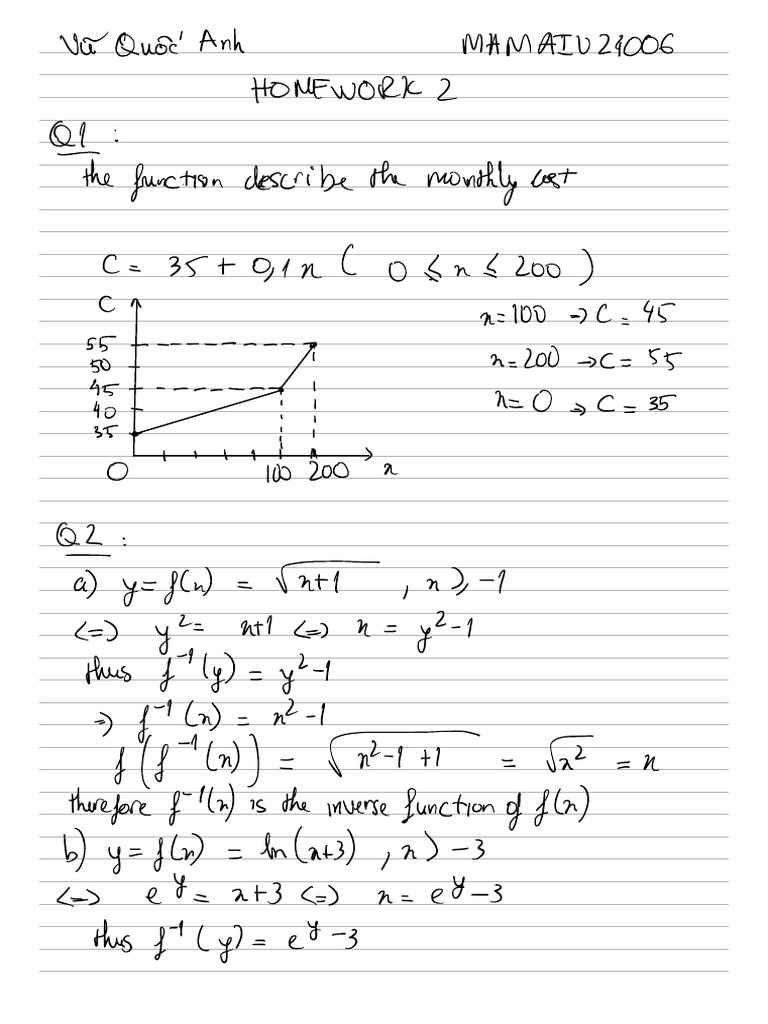 Vũ Quốc Anh MAMAIU21006
HOMEWORK 2
Q1 :
the function describe the monthly cost
C = 35 + 0,1x ( 0 ≤ x ≤ 200 )
C
55
50
45
40
35
O 100 200 x
x = 100 → C = 45
x = 200 → C = 55
x = 0 → C = 35
Q2 :
a) y = f(x) = √(x+1) , x ≥ -1
<=> y² = x+1 <=> x = y² - 1
thus f⁻¹(y) = y² - 1
⇒ f⁻¹(x) = x² - 1
f(f⁻¹(x)) = √(x² - 1 + 1) = √x² = x
therefore f⁻¹(x) is the inverse function of f(x)
b) y = f(x) = ln(x+3) , x > -3
<=> e^y = x+3 <=> x = e^y - 3
thus f⁻¹(y) = e^y - 3